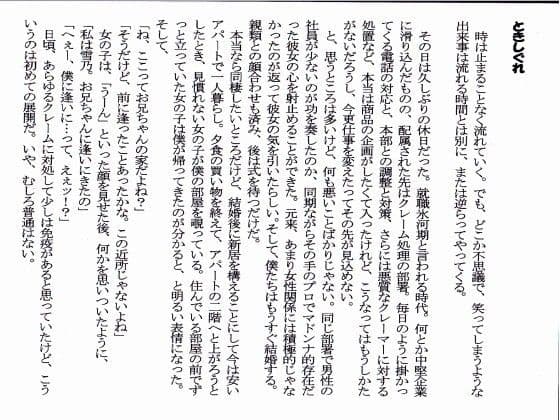 ときしぐれ
時は止まることなく流れていく。でも、どこか不思議で、笑ってしまうような
出来事は流れる時間とは別に、または逆らってやってくる。
その日は久しぶりの休日だった。就職氷河期と言われる時代。何とか中堅企業
に滑り込んだものの、配属された先はクレーム処理の部署。毎日のように掛かっ
てくる電話の対応と、本部との調整と対策、さらには悪質なクレーマーに対する
処置など、本当は商品の企画がしたくて入ったけれど、こうなってはもうしかた
がないだろうし、今更仕事を変えたってその先が見込めない。
と、思うところは多いけど、何も悪いことばかりじゃない。同じ部署で男性の
社員が少ないのが功を奏したのか、同期ながらその手のプロでマドンナ的存在だ
った彼女の心を射止めることができた。元来、あまり女性関係には積極的じゃな
かったのが返って彼女の気を引いたらしい。そして、僕たちはもうすぐ結婚する。
親類との顔合わせも済み、後は式を待つだけだ。
本当なら同棲したいところだけど、結婚後に新居を構えることにして今は安い
アパートで一人暮らし。夕食の買い物を終えて、アパートの二階へと上がろうと
したとき、見慣れない女の子が僕の部屋を覗っている。住んでいる部屋の前でず
っと立っていた女の子は僕が帰ってきたのが分かると、と明るい表情になった。
そして、
「ね、ここってお兄ちゃんの家だよね?」
「そうだけど、前に逢ったことあったかな。この近所じゃないよね」
女の子は、「うーん」といった顔を見せた後、何かを思いついたように、
「私は雪乃。お兄ちゃんに逢いにきたの」
「へぇー、僕に逢いに…って、えぇッ!?」
日頃、あらゆるクレームに対処して少しは免疫があると思っていたけど、こう
いうのは初めての展開だ。いや、むしろ普通はない。